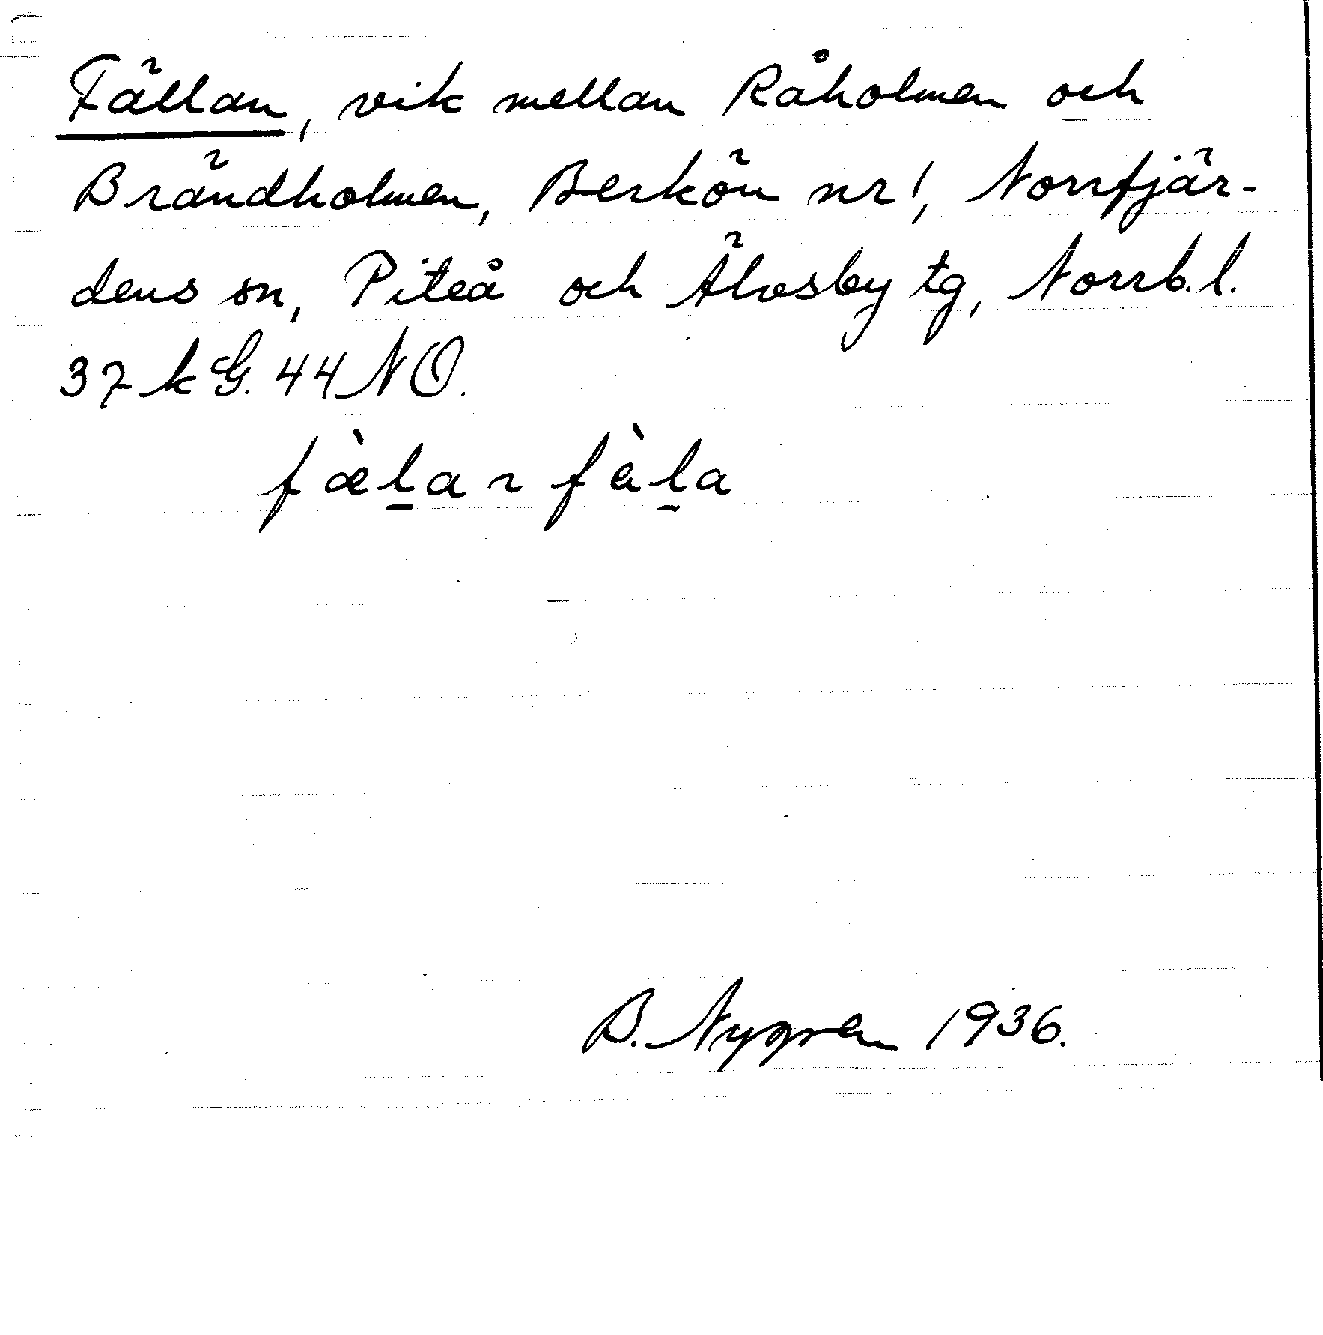 Fällan, vik mellan Råholmen och
Brändholmen, Berkön nr 1, Norrfjär-
dens sn, Piteå och Älvsby tg, Norrb. l.
37 k G. 44 NO.
fæ̀l̲a ~ fàl̲a
B. Nygren 1936.